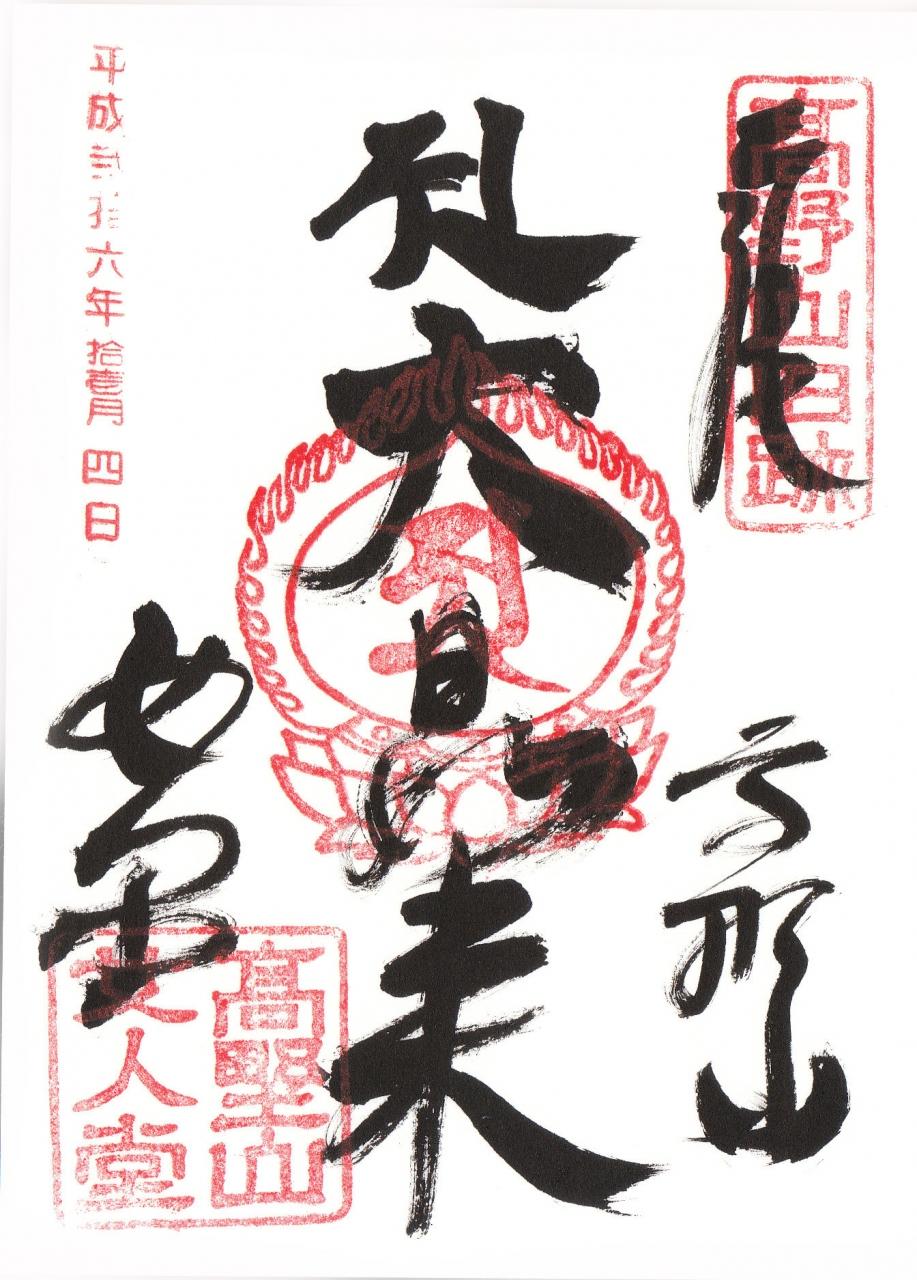 高野山旧跡
奉拝
高野山
大日如来
女人堂
高野山
女人堂
平成弐拾六年拾壹月四日